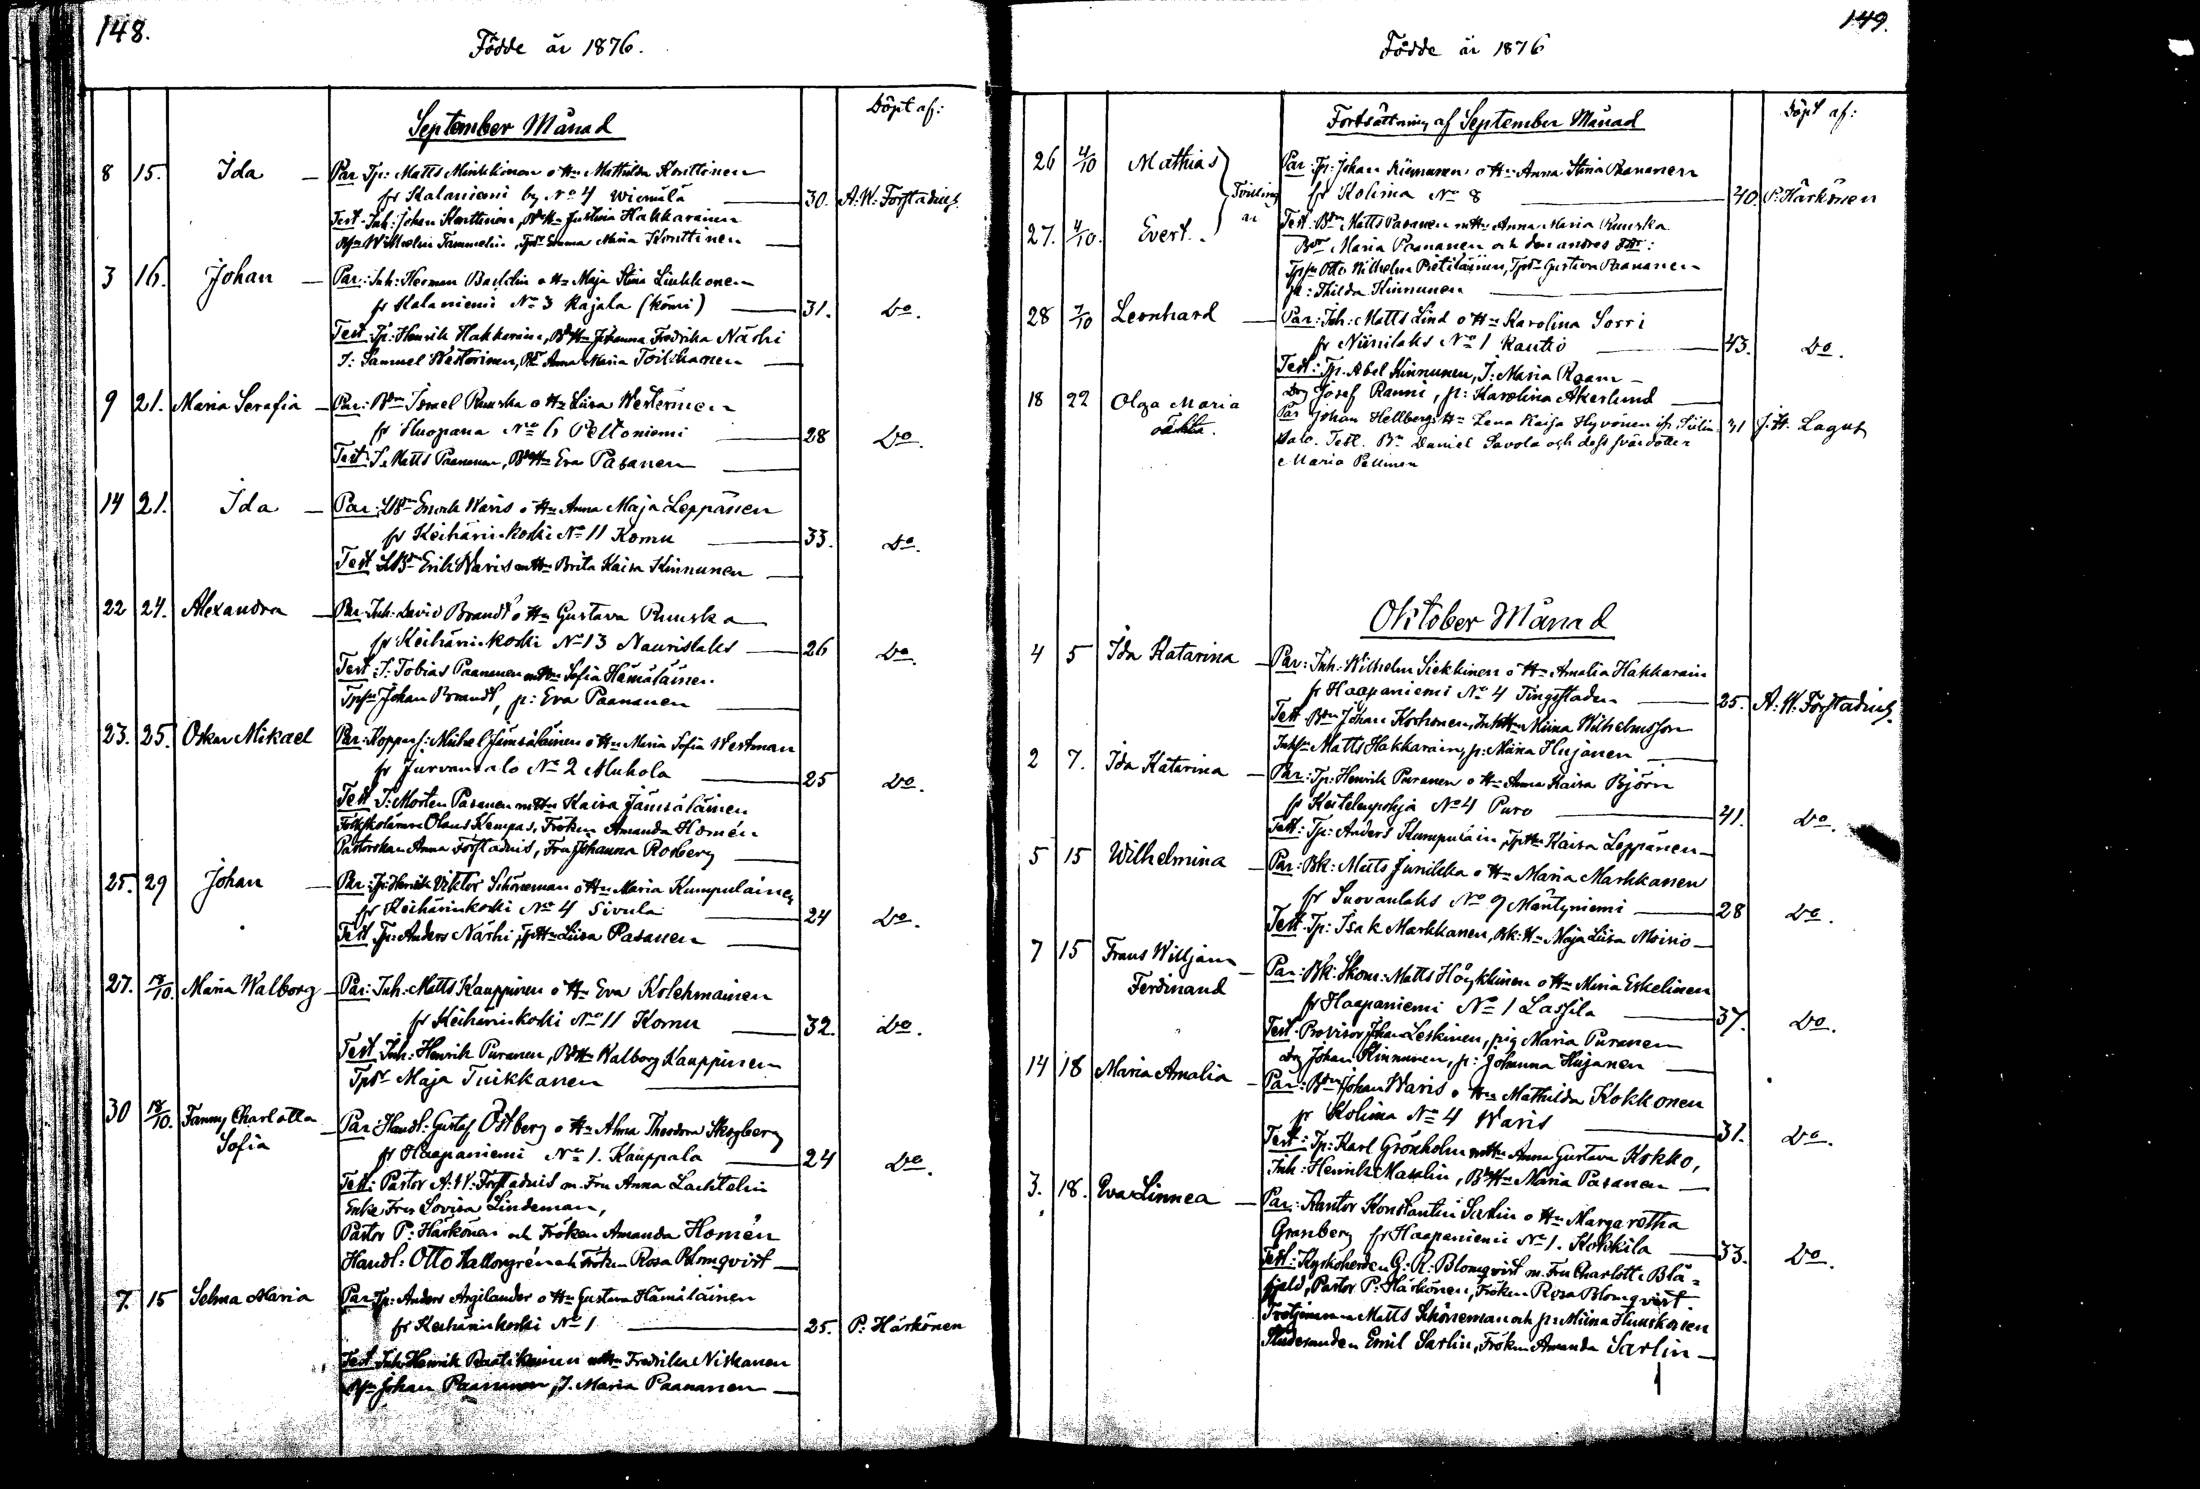 148.
Födde år 1876.
September Månad
Döpt af:
8 15. Ida — Par: Tp: Matts Minkkinen o Hu Mathilda Konttinen
fr Kalaniemi by No 4 Wiemälä — 30. A. W. Forstadius
Test: Inh: Johan Konttinen, Hu Justina Hakkarainen
Wilhelm Tammelin, Emma Maria Konttinen —
3 16. Johan — Par: Inh: Herman Bachlin o Hu Maja Stina Liukkonen
fr Kalaniemi No 3 Rajala (komi) — 31. Do.
Test: Tp: Henrik Hakkarainen, Hu Johanna Fredrika Närhi
J: Samuel Westerinen, Anna Maria Toikkanen —
9 21. Maria Serafia — Par: Bn Israel Ruuska o Hu Liisa Westerinen
fr Huopana No 6 Peltoniemi — 28 Do.
Test: J: Matts Paananen, Hu Eva Pasanen —
14 21. Ida — Par: LBn Enok Waris o Hu Anna Maja Leppänen
fr Keihärinkoski No 11 Komu — 33. Do.
Test LBn Erik Waris m Hu Brita Kaisa Kinnunen —
22 24. Alexandra — Par: Inh: David Brandt o Hu Gustava Ruuska
fr Keihärinkoski No 13 Naurislaks — 26 Do.
Test: J: Tobias Paananen m Hu Sofia Hämäläinen
Johan Brandt, p: Eva Paananen —
23. 25. Oskar Mikael Par: Kopparsl: Mikael Jämsäläinen o Hu Maria Sofia Westman
fr Jurvansalo No 2 Muhola — 25 Do.
Test J: Morten Pasanen m Hu Kaisa Jämsäläinen
Folkskolärare Olaus Kempas, Fröken Amanda Homén
Pastorskan Anna Forstadius, Fru Johanna Rosberg —
25. 29 Johan — Par: Henrik Viktor Schöneman o Hu Maria Kumpulainen
fr Keihärinkoski No 4 Sivula — 24 Do.
Test Tp: Anders Närhi, Hu Liisa Pasanen —
27. 12/10. Maria Walborg — Par: Inh: Matts Kauppinen o Hu Eva Kolehmainen
fr Keihärinkoski No 11 Komu — 32. Do.
Test Inh: Henrik Puranen, Hu Walborg Kauppinen
Maja Tuikkanen —
30 18/10. Fanny Charlotta — Par: Handl: Gustaf Östberg o Hu Alma Theodora Skogberg
Sofia fr Haapaniemi No 1. Kauppala — 24 Do.
Test: Pastor A. W. Forstadius m. Fru Anna Lachtelin
Enke Fru Lovisa Lindeman,
Pastor P: Härkönen och Fröken Amanda Homén
Handl: Otto Hallongrén och Fröken Rosa Blomqvist —
7. 15 Selma Maria Par: Tp: Anders Argilander o Hu Gustava Hämäläinen
fr Keihärinkoski No 1 — 25. P: Härkönen
Test Inh: Henrik Raatikainen m Hu Fredrika Niskanen
Johan Paananen, J. Maria Paananen —
149.
Födde år 1876
Fortsättning af September Månad
Döpt af:
26 4/10 Mathias Par: Tp: Johan Kinnunen o Hu Anna Stina Paananen
Tvillingar fr Kolima No 8 — 40. P. Härkönen
27. 4/10. Evert. Test: Bn Matts Pasanen m Hu Anna Maria Ruuska
Maria Paananen och den andres
Otto Wilhelm Pietiläinen, Gustava Paananen
p: Thilda Kinnunen —
28 7/10 Leonhard — Par: Inh: Matts Lind o Hu Karolina Sorri
fr Niinilaks No 1 Rautio — 43. Do.
Test: Tp: Abel Kinnunen, J: Maria
drg Josef Ranni, p: Karolina Åkerlund —
18 22 Olga Maria Par Johan Hellberg, Hu Lena Kaisa Hyvönen ifr Siilin- 31 J. H. Lagus
oäkta. salo. Test. Bn Daniel Savola och dess svärdotter
Maria Pellinen
Oktober Månad
4 5 Ida Katarina — Par: Inh: Wilhelm Siekkinen o Hu Amalia Hakkarain
fr Haapaniemi No 4 Tingstaden — 25. A. W. Forstadius
Test Bn Johan Korhonen, Miina Wilhelmsson
Matts Hakkarain, p: Miina Hujanen —
2 7. Ida Katarina — Par: Tp: Henrik Puranen o Hu Anna Kaisa Björn
fr Keitelepohja No 4 Puro — 41. Do.
Test: Tp: Anders Kumpulain, Hu Kaisa Leppänen —
5 15 Wilhelmina — Par: Bk: Matts Junikka o Hu Maria Markkanen
fr Suovanlaks No 9 Mäntyniemi — 28 Do.
Test. Tp: Isak Markkanen, Bk: Hu Maja Liisa Moisio —
7 15 Frans Willijam — Par: Bk: Skom: Matts Höykkinen o Hu Miina Eskelinen
Ferdinand fr Haapaniemi No 1 Lassila — 37. Do.
Test: Provisor Johan Leskinen, pig Maria Puranen
drg Johan Kinnunen, p: Johanna Hujanen —
14 18 Maria Amalia — Par: Bn Johan Waris o Hu Mathilda Kokkonen
fr Kolima No 4 Waris — 31. Do.
Test: Tp: Karl Grönholm m Hu Anna Gustava Kokko,
Inh: Henrik Masalin, Hu Maria Pasanen —
3. 18. Eva Linnea — Par: Kantor Konstantin Sarlin o Hu Margaretha
Granberg fr Haapaniemi No 1. Kokkila — 33. Do.
Test: Kyrkoherden G. R. Blomqvist m. Fru Charlotte Blå-
fjeld, Pastor P: Härkönen, Fröken Rosa Blomqvist
Matts Schöneman och p: Miina Huuskonen
Studeranden Emil Sarlin, Fröken Amanda Sarlin —